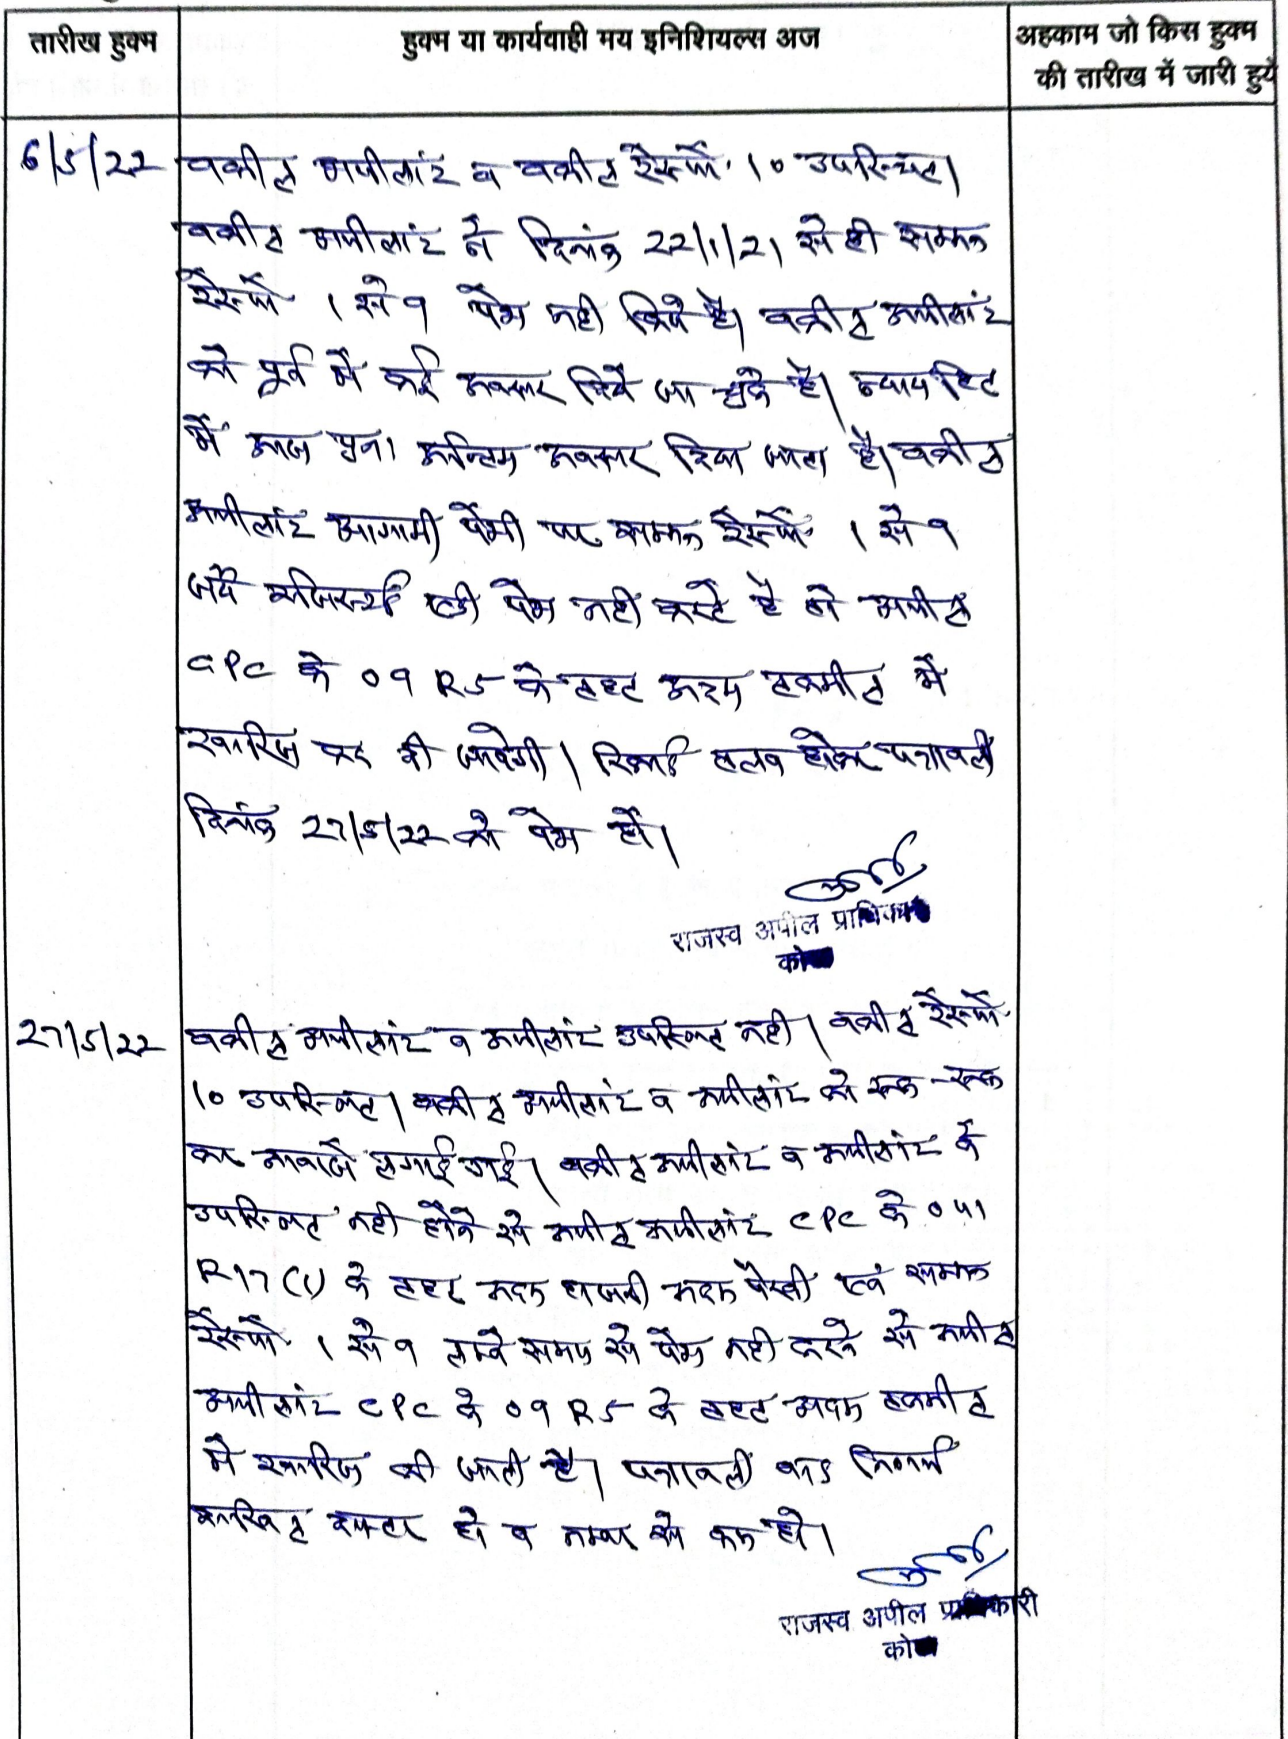 तारीख हुक्म
हुक्म या कार्यवाही मय इनिशियल्स अज
अहकाम जो किस हुक्म
की तारीख में जारी हुये
6/5/22
वकील अपीलांट व वकील रैस्पो. 10 उपस्थित।
वकील अपीलांट ने दिनांक 22/1/21 से ही सम्मन
रैस्पो. 1 से 9 पेश नही किये है। वकील अपीलांट
को पूर्व में कई अवसर दिये जा चुके है। न्यायहित
में आज पुनः अन्तिम अवसर दिया जाता है। वकील
अपीलांट आगामी पेशी पर सम्मन रैस्पो. 1 से 9
जर्ये रजिस्टर्ड एडी पेश नही करते है तो अपील
CPC के 09 R5 के तहत अदम तकमील में
खारिज कर दी जावेगी। रिकार्ड तलब होकर पत्रावली
दिनांक 27/5/22 को पेश हो।
राजस्व अपील
27/5/22
वकील अपीलांट व अपीलांट उपस्थित नही। वकील रैस्पो.
10 उपस्थित। वकील अपीलांट व अपीलांट को रूक-रूक
कर आवाजें लगाई गई। वकील अपीलांट व अपीलांट के
उपस्थित नही होने से अपील अपीलांट CPC के 041
R17(1) के तहत अदम हाजरी अदम पैरवी एवं सम्मन
रैस्पो. 1 से 9 लम्बे समय से पेश नही करने से अपील
अपीलांट CPC के 09 R5 के तहत अदम तकमील
में खारिज की जाती है। पत्रावली बाद निर्णय
दाखिल दफ्तर हो व नम्बर से कम हो।
राजस्व अपील